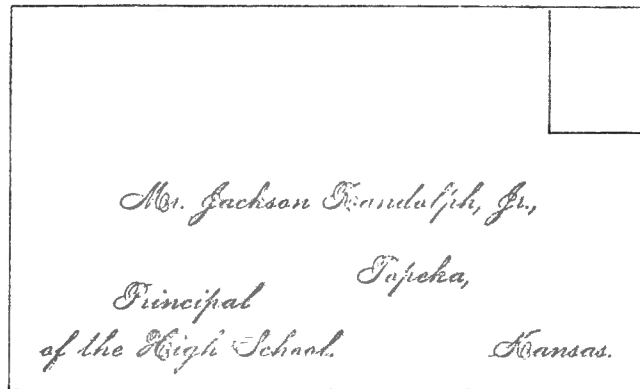 Mr. Jackson Randolph, Jr.,
Topeka,
Principal
of the High School.
Kansas.